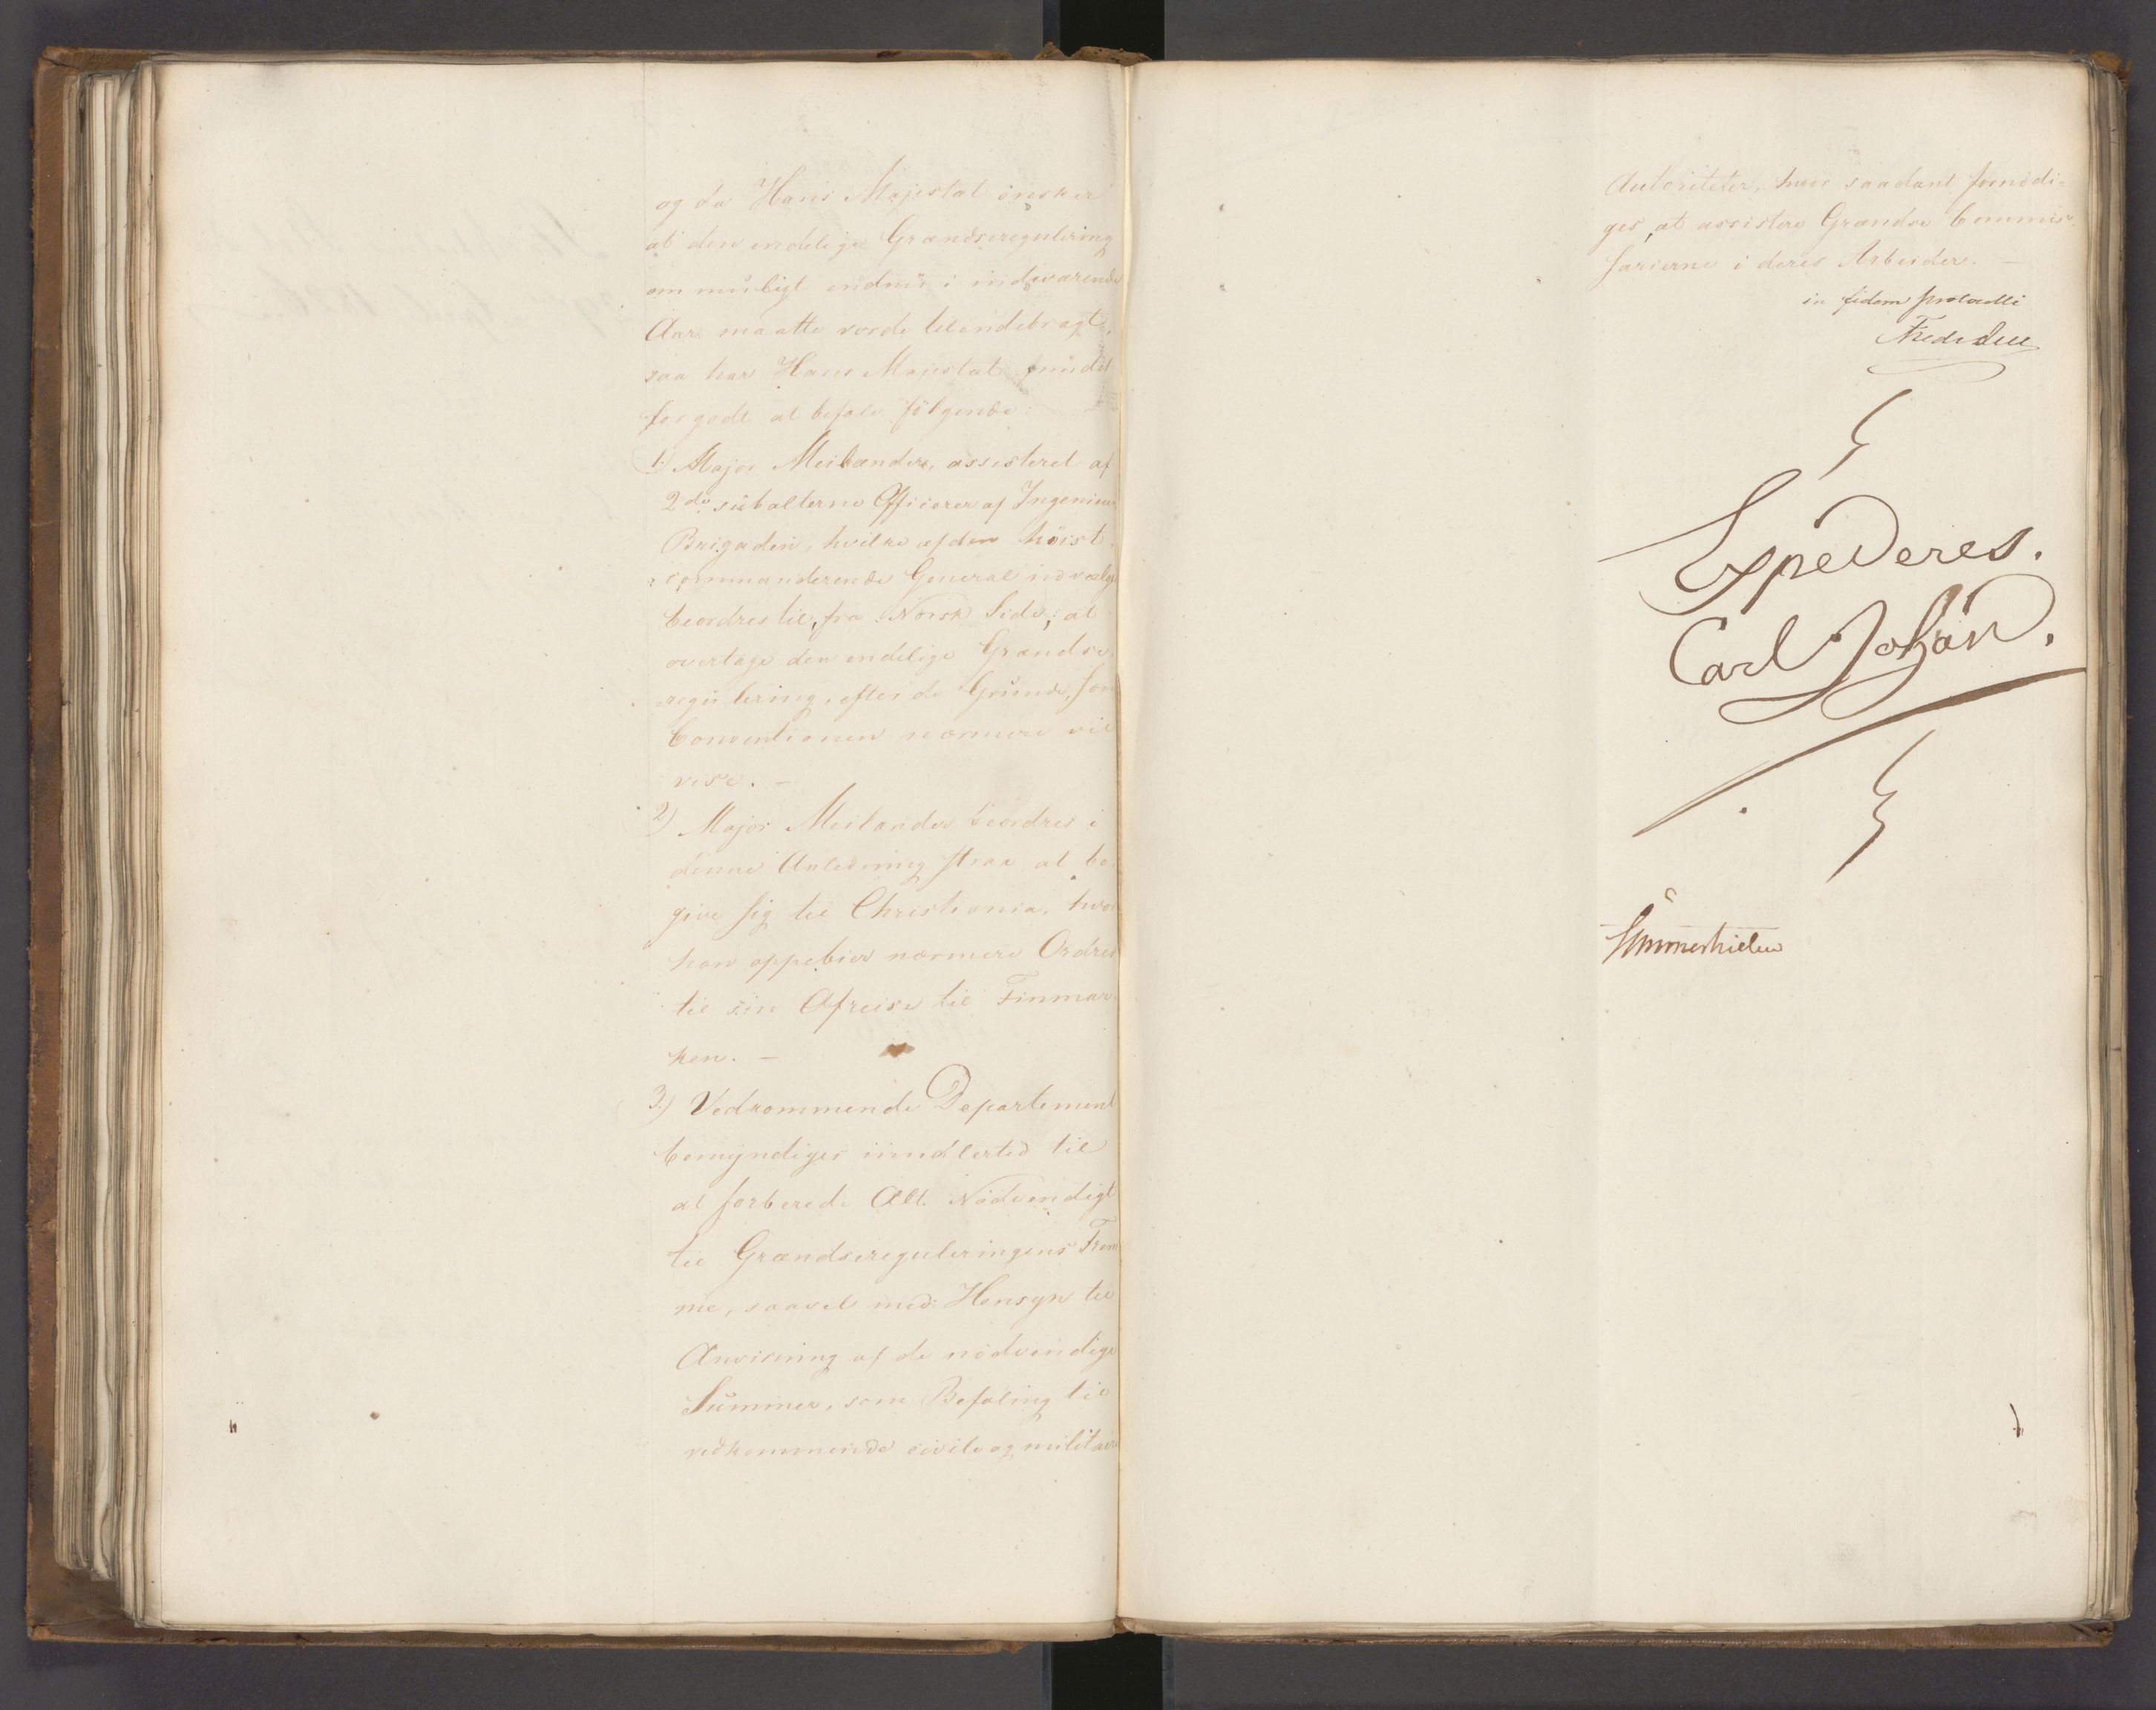 og da Hans Majestæt önsker
at den endelige Grændseregulering
om muligt endnu i indeværende
Aar maatte vorde tilendebragt,
saa har Hans Majestæt fundet
for godt at befale fölgende:
1.) Major Meilænder, assisteret af
2de subalterne Officierer af Ingenieur
Brigaden, hvilke af den höist-
commanderende General udvælges
beordres til, fra Norsk Side, at
overtage den endelige Grændse-
regulering, efter de Grunde, som
Conventionen nærmere vil
vise. —
2) Major Meilænder beordres i
denne Anledning strax at be-
give sig til Christiania, hvor
han oppebier nærmere Ordres
til sin Afreise til Finmar-
ken. —
3.) Vedkommende Departement
bemyndiges imidlertid til
at forberede Alt Nödvendigt
til Grændsereguleringens Frem-
me, saavel med Hensyn til
Anvisning af de nödvendige
Summer, som Befaling til
vedkommende civile og militaire
Autoriteter, hvor saadant fornödi-
ges, at assistere Grændse Commis-
sarierne i deres Arbeider. —
in fidem protocolli
Fredr Due
Expederes.
Carl Johan.
Sommerhielm